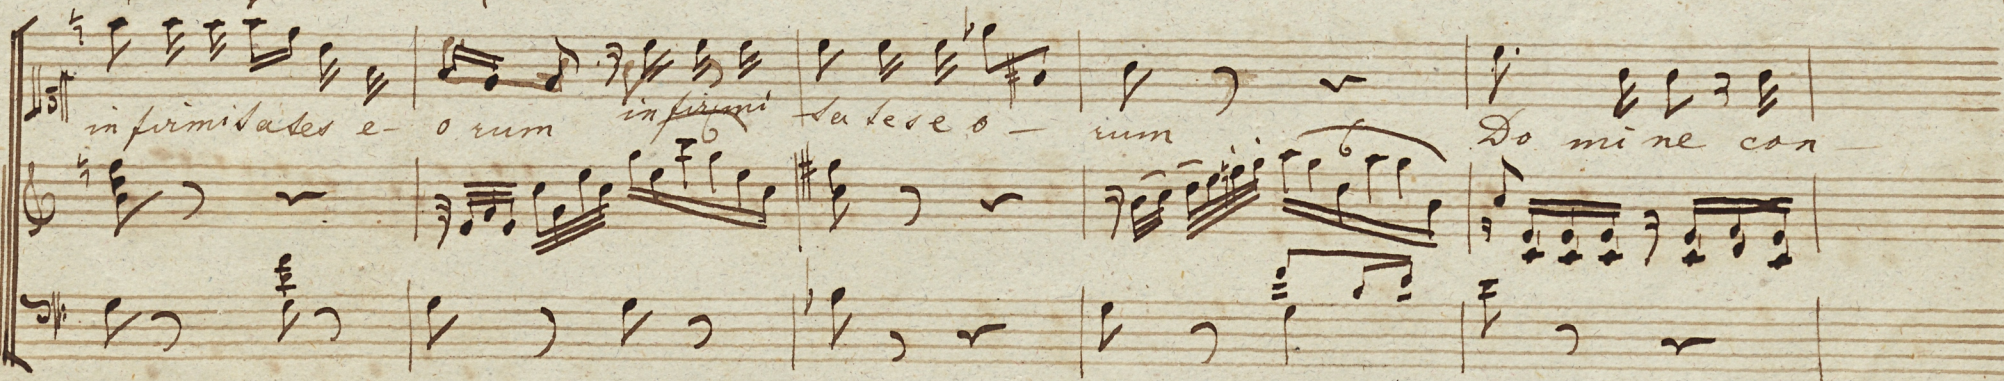 infirmitates e- o rum infirmi tates e o - rum Do mi ne con-
6 6